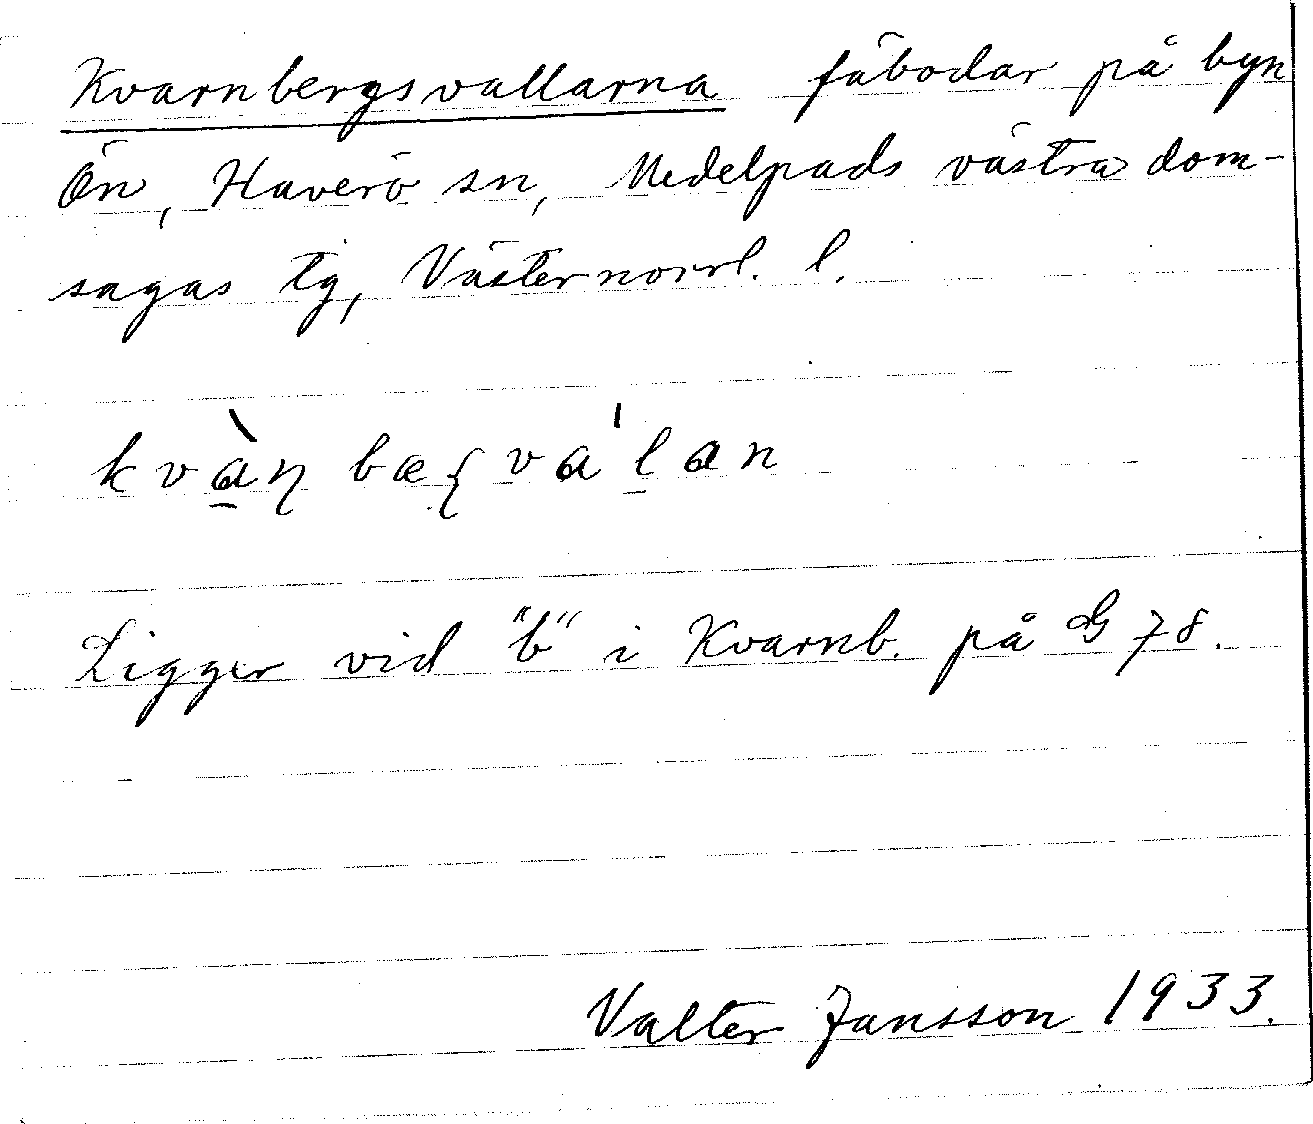 Kvarnbergsvallarna fäbodar på byn
Ön, Haverö sn, Medelpads västra dom-
sagas tg, Västernorrl. l.
Ligger vid "b" i Kvarnb. på G 78.
Valter Jansson 1933.